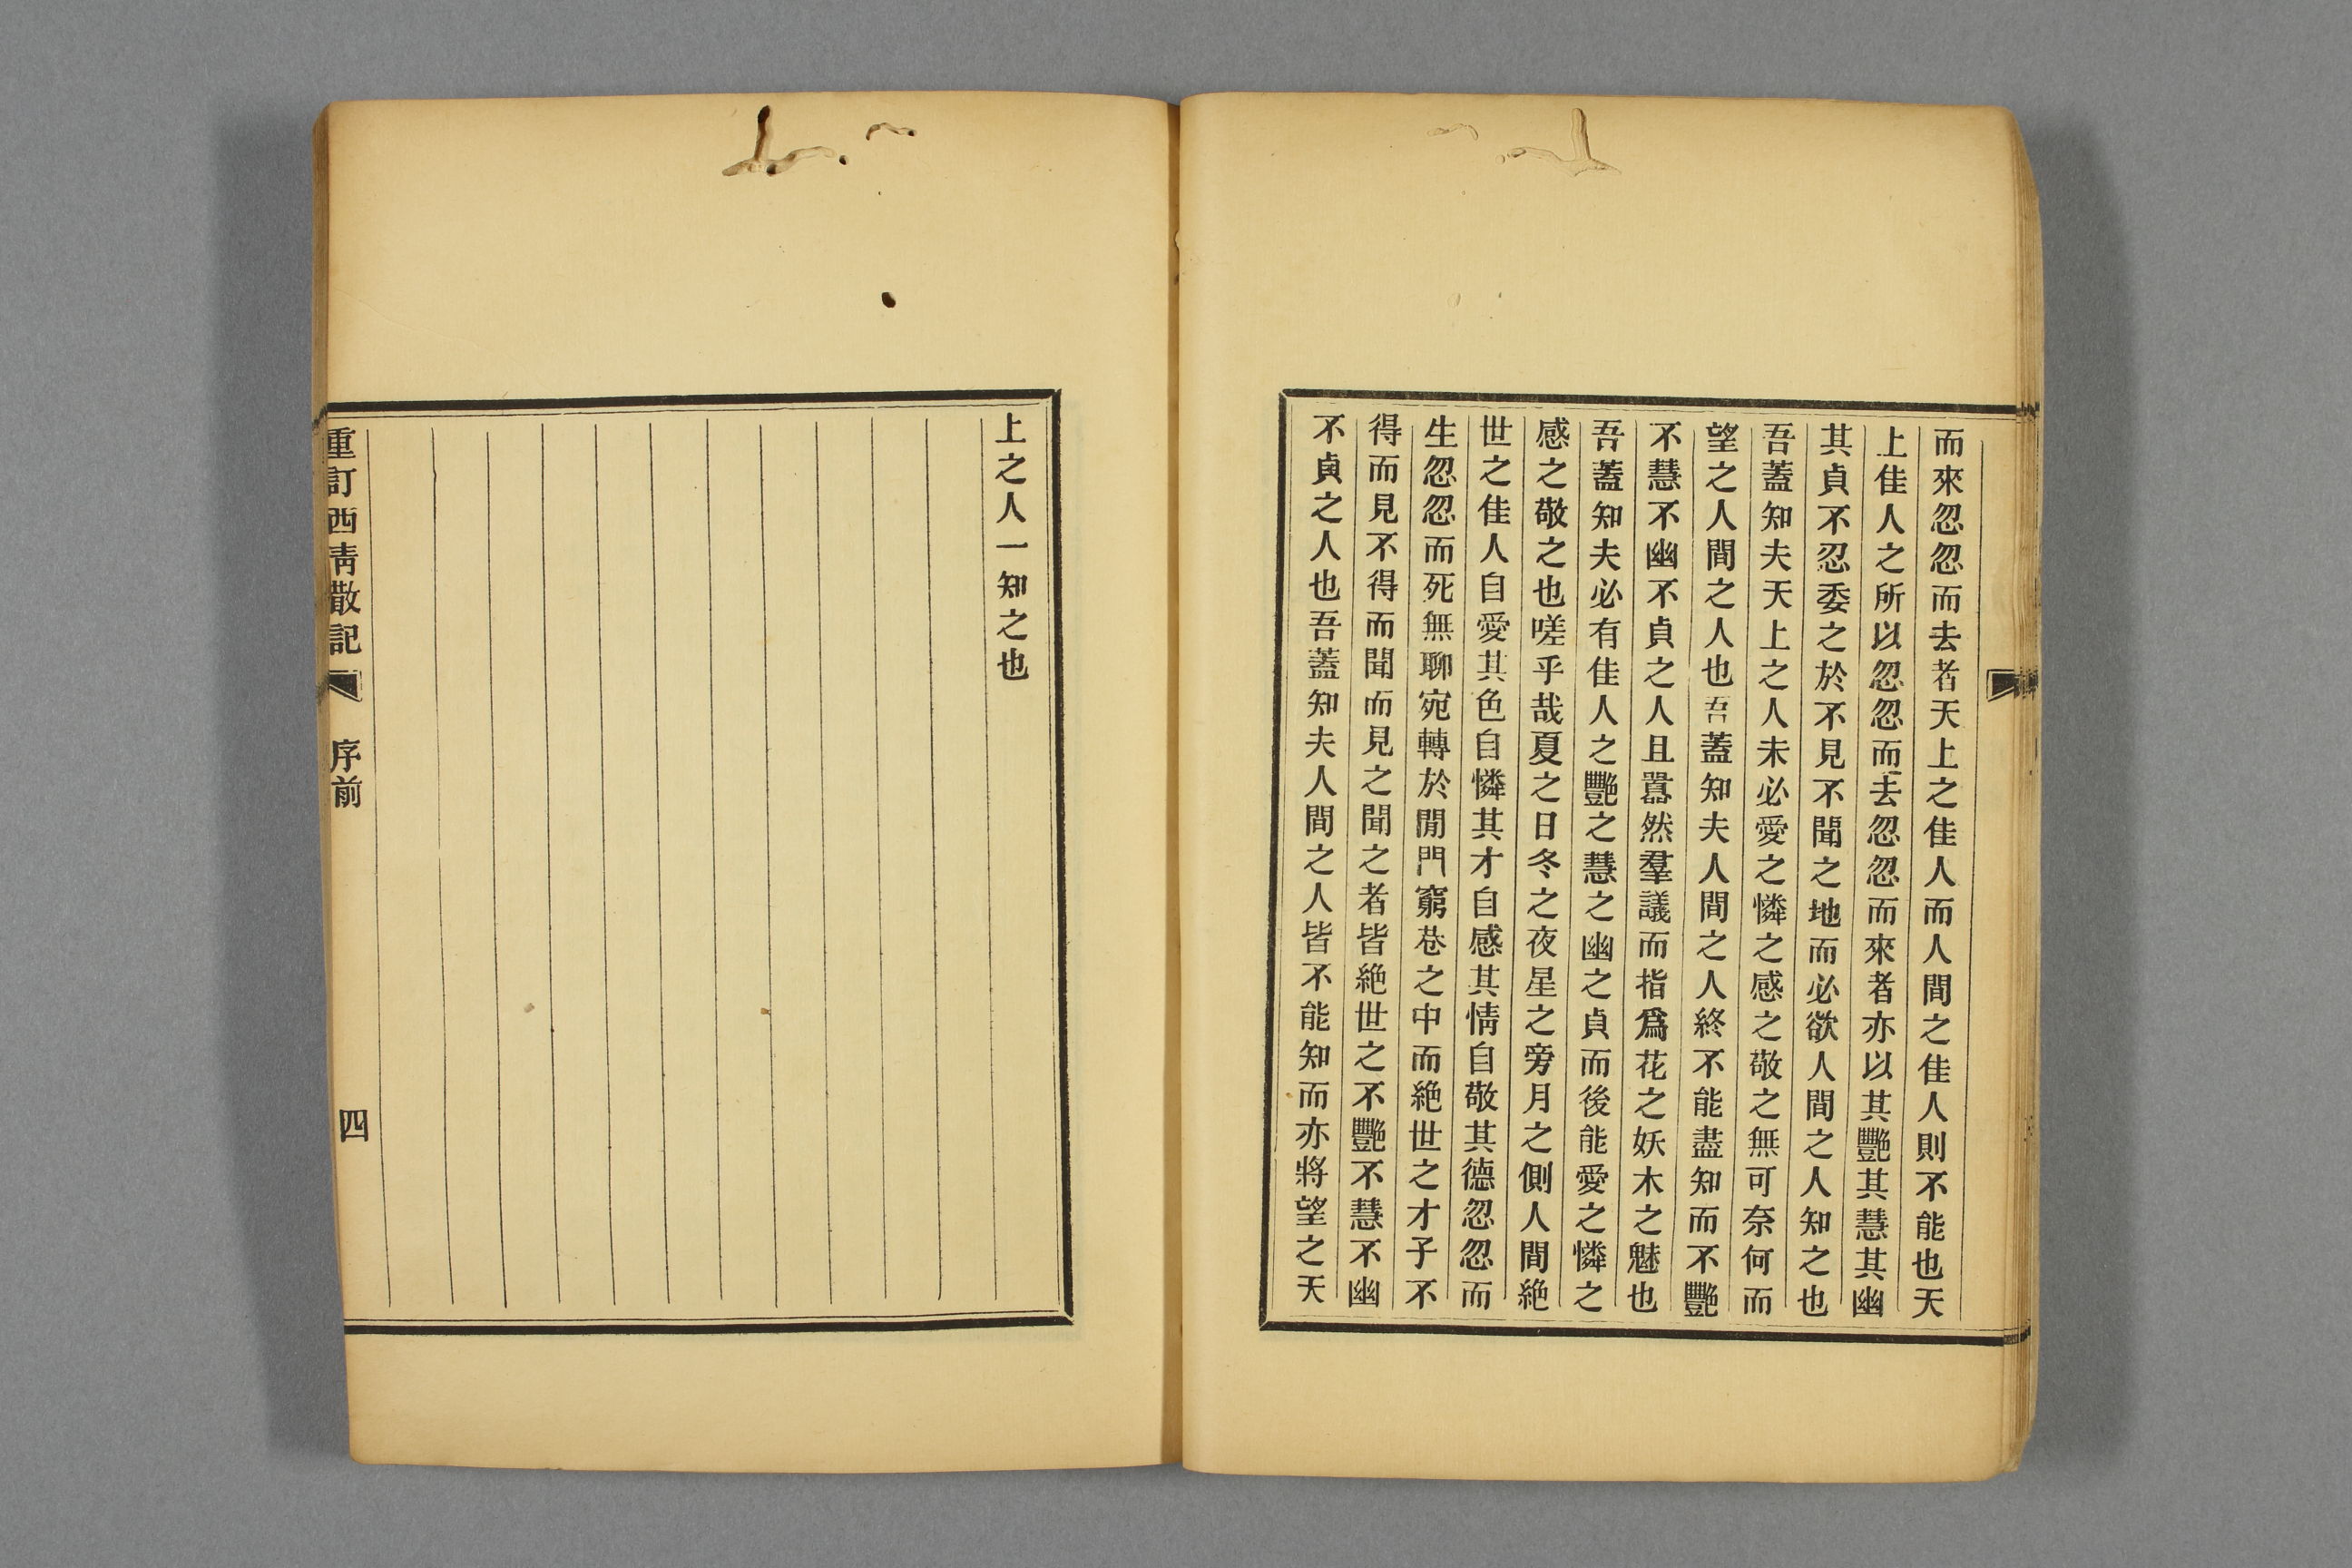 而來忽忽而去者天上之佳人而人間之佳人則不能也天
上佳人之所以忽忽而去忽忽而來者亦以其豔其慧其幽
其貞不忍委之於不見不聞之地而必欲人間之人知之也
吾蓋知夫天上之人未必愛之憐之感之敬之無可奈何而
望之人間之人也吾蓋知夫人間之人終不能盡知而不豔
不慧不幽不貞之人且囂然羣議而指爲花之妖木之魅也
吾蓋知夫必有佳人之豔之慧之幽之貞而後能愛之憐之
感之敬之也嗟乎哉夏之日冬之夜星之旁月之側人間絶
世之佳人自愛其色自憐其才自感其情自敬其德忽忽而
生忽忽而死無聊宛轉於閒門窮巷之中而絶世之才子不
得而見不得而聞而見之聞之者皆絶世之不豔不慧不幽
不貞之人也吾蓋知夫人間之人皆不能知而亦將望之天
上之人一知之也
重訂西青散記
序前
四